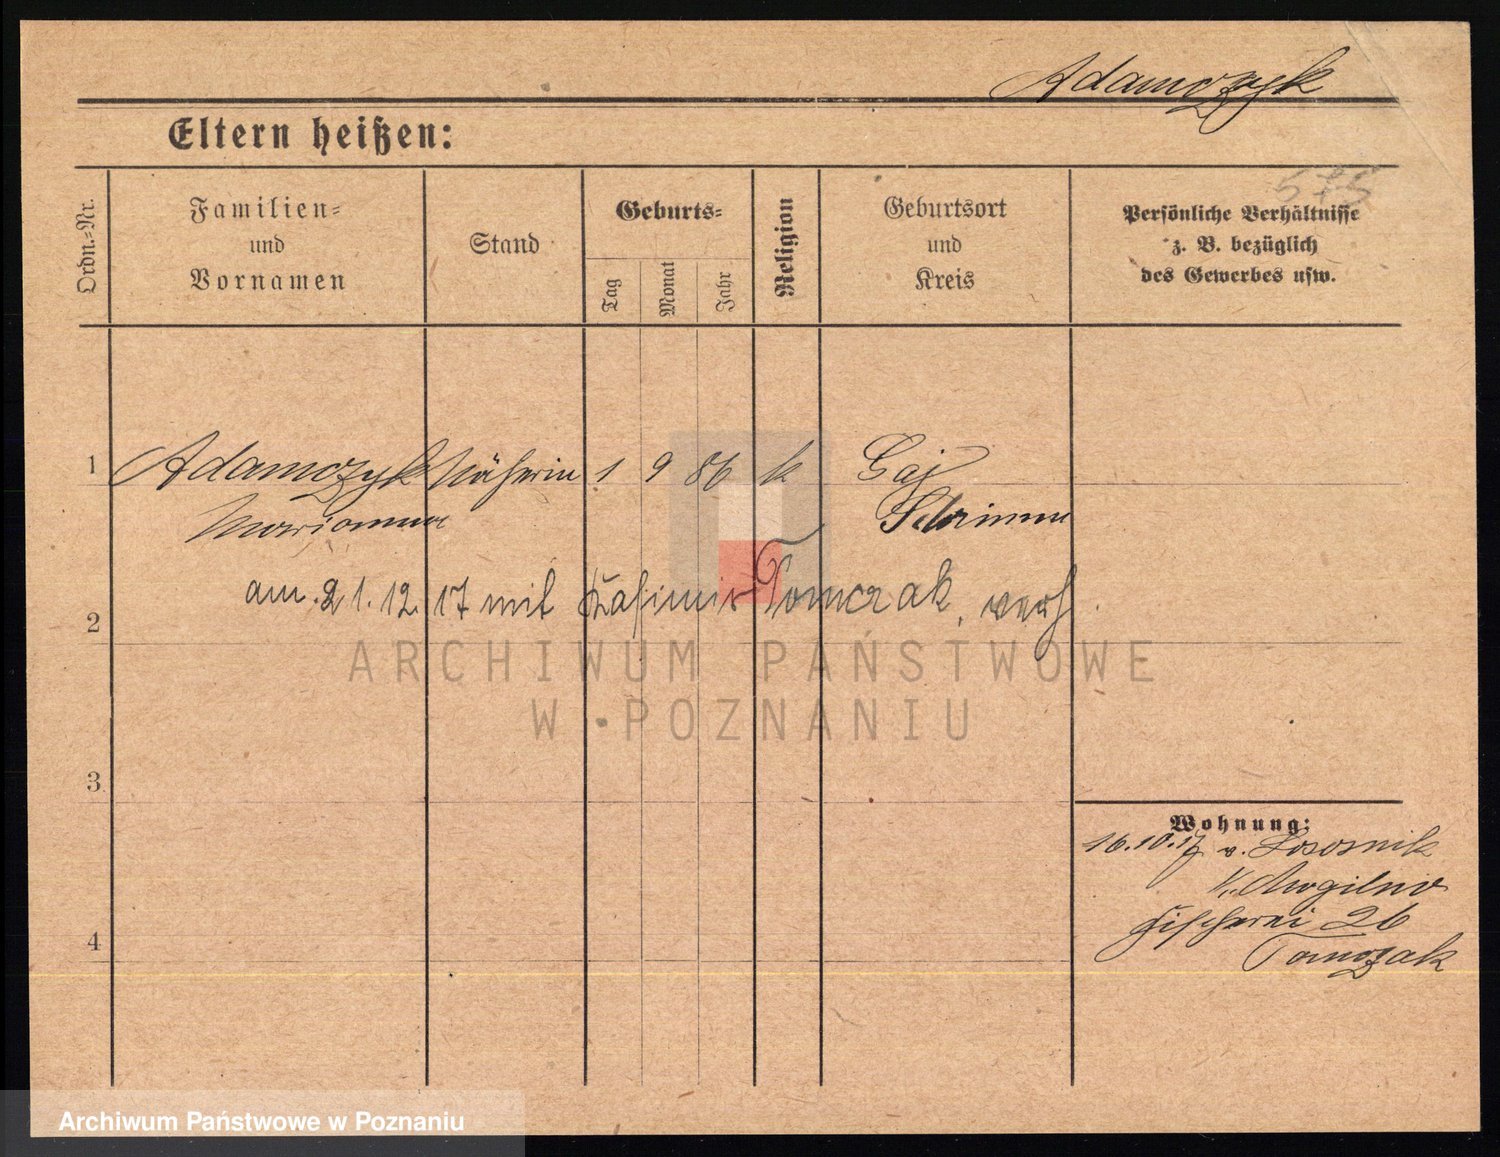 Adamczyk
Eltern heißen:
575
Ordn.-Nr.
Familien-
und
Vornamen
Stand
Geburts-
Tag
Monat
Jahr
Religion
Geburtsort
und
Kreis
Persönliche Verhältnisse
z. B. bezüglich
des Gewerbes usw.
1 Adamczyk Näherin 1 9 86 k Gaj
Marianna Schrimm
am 21.12.17 mit Kasimir Tomczak, verh.
2
ARCHIWUM PAŃSTWOWE
W POZNANIU
3
Wohnung:
16.10.17 v. Lososnik
K. Mogilno
Fischerei 26
4
Tomczak
Archiwum Państwowe w Poznaniu